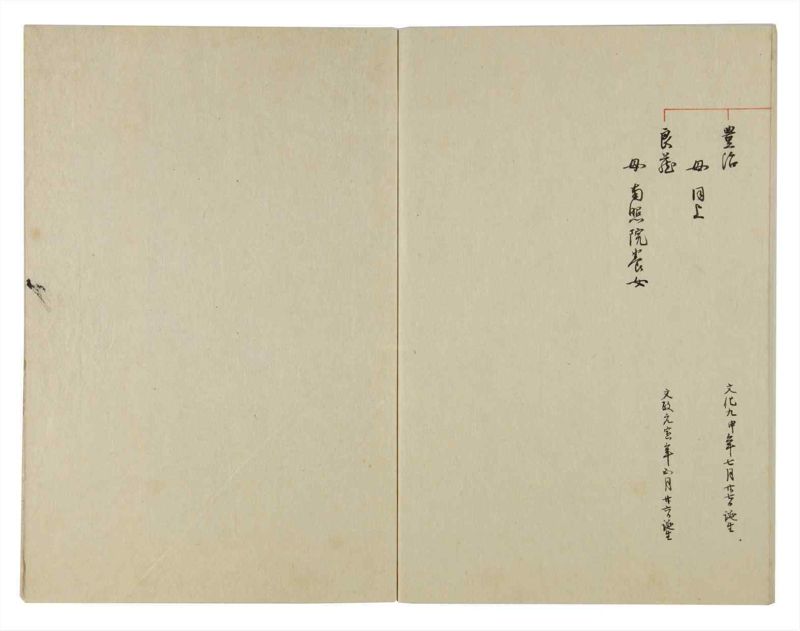 豊治
文化九申年七月廿七日誕生
母 同上
良蔵
文政元寅年正月廿六日誕生
母 南照院養女